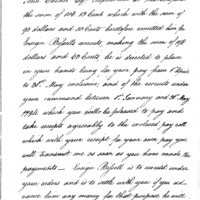 the sum of 108 13 Cents which with the sum of
90 dollars and 50 cents heretofore remitted him for
Ensign Bissell's recruits, making the sum of 198
dollars and 63 Cents he is directed to place
in your hands being for your pay from 1
to 31st May inclusive, and of the recruits under
your command between 1st January and 31st May
1794, which you will be pleased to pay and
take receipts agreeably to the enclosed pay roll
which with your receipt for your own pay you
will transmit me as soon as you have made the
payments — Ensign Bissell is to recruit under
your orders and is to settle with you if you ad-
vance him any money for that purpose he will